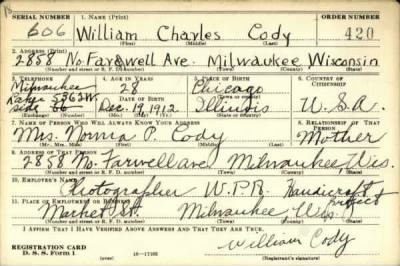 SERIAL NUMBER 1. NAME (Print) ORDER NUMBER
606 William Charles Cody 420
(First) (Middle) (Last)
2. ADDRESS (Print)
2858 No. Farwell Ave. Milwaukee Wisconsin
(Number and street or R. F. D. number) (Town) (County) (State)
3. TELEPHONE 4. AGE IN YEARS 5. PLACE OF BIRTH 6. COUNTRY OF CITIZENSHIP
Milwaukee 28 Chicago
DATE OF BIRTH (Town or county)
Dec. 19, 1912 Illinois U.S.A.
(Exchange) (Number) (Mo.) (Day) (Yr.) (State or country)
7. NAME OF PERSON WHO WILL ALWAYS KNOW YOUR ADDRESS 8. RELATIONSHIP OF THAT PERSON
Mrs. Norma P. Cody Mother
(Mr., Mrs., Miss) (First) (Middle) (Last)
9. ADDRESS OF THAT PERSON
2858 No. Farwell ave, Milwaukee Wis.
(Number and street or R. F. D. number) (Town) (County) (State)
10. EMPLOYER'S NAME
Photographer W.P.A. Handicraft Project
11. PLACE OF EMPLOYMENT OR BUSINESS
Market St. Milwaukee, Wis.
(Number and street or R. F. D. number) (Town) (County) (State)
I AFFIRM THAT I HAVE VERIFIED ABOVE ANSWERS AND THAT THEY ARE TRUE.
William Cody
REGISTRATION CARD
D. S. S. Form 1 (over) (Registrant's signature)